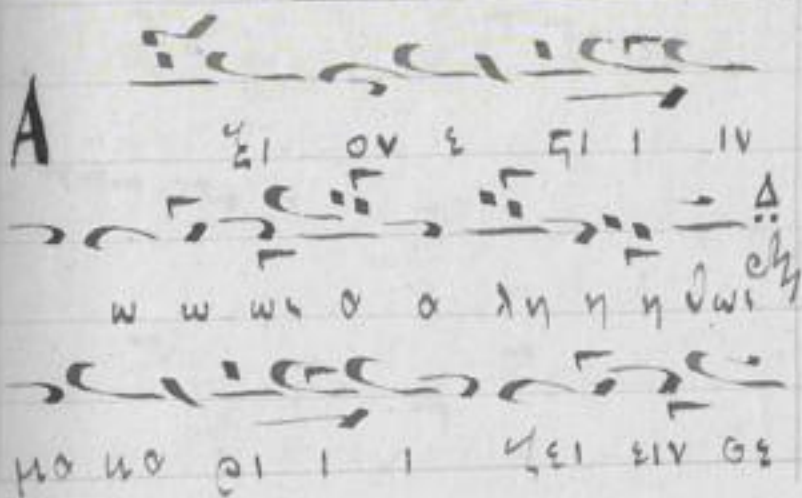 Α ξι ον ε ϛι ι ιν
ω ω ως α α λη η η θως Δ
μα κα α ρι ι ι ζει ειν σε